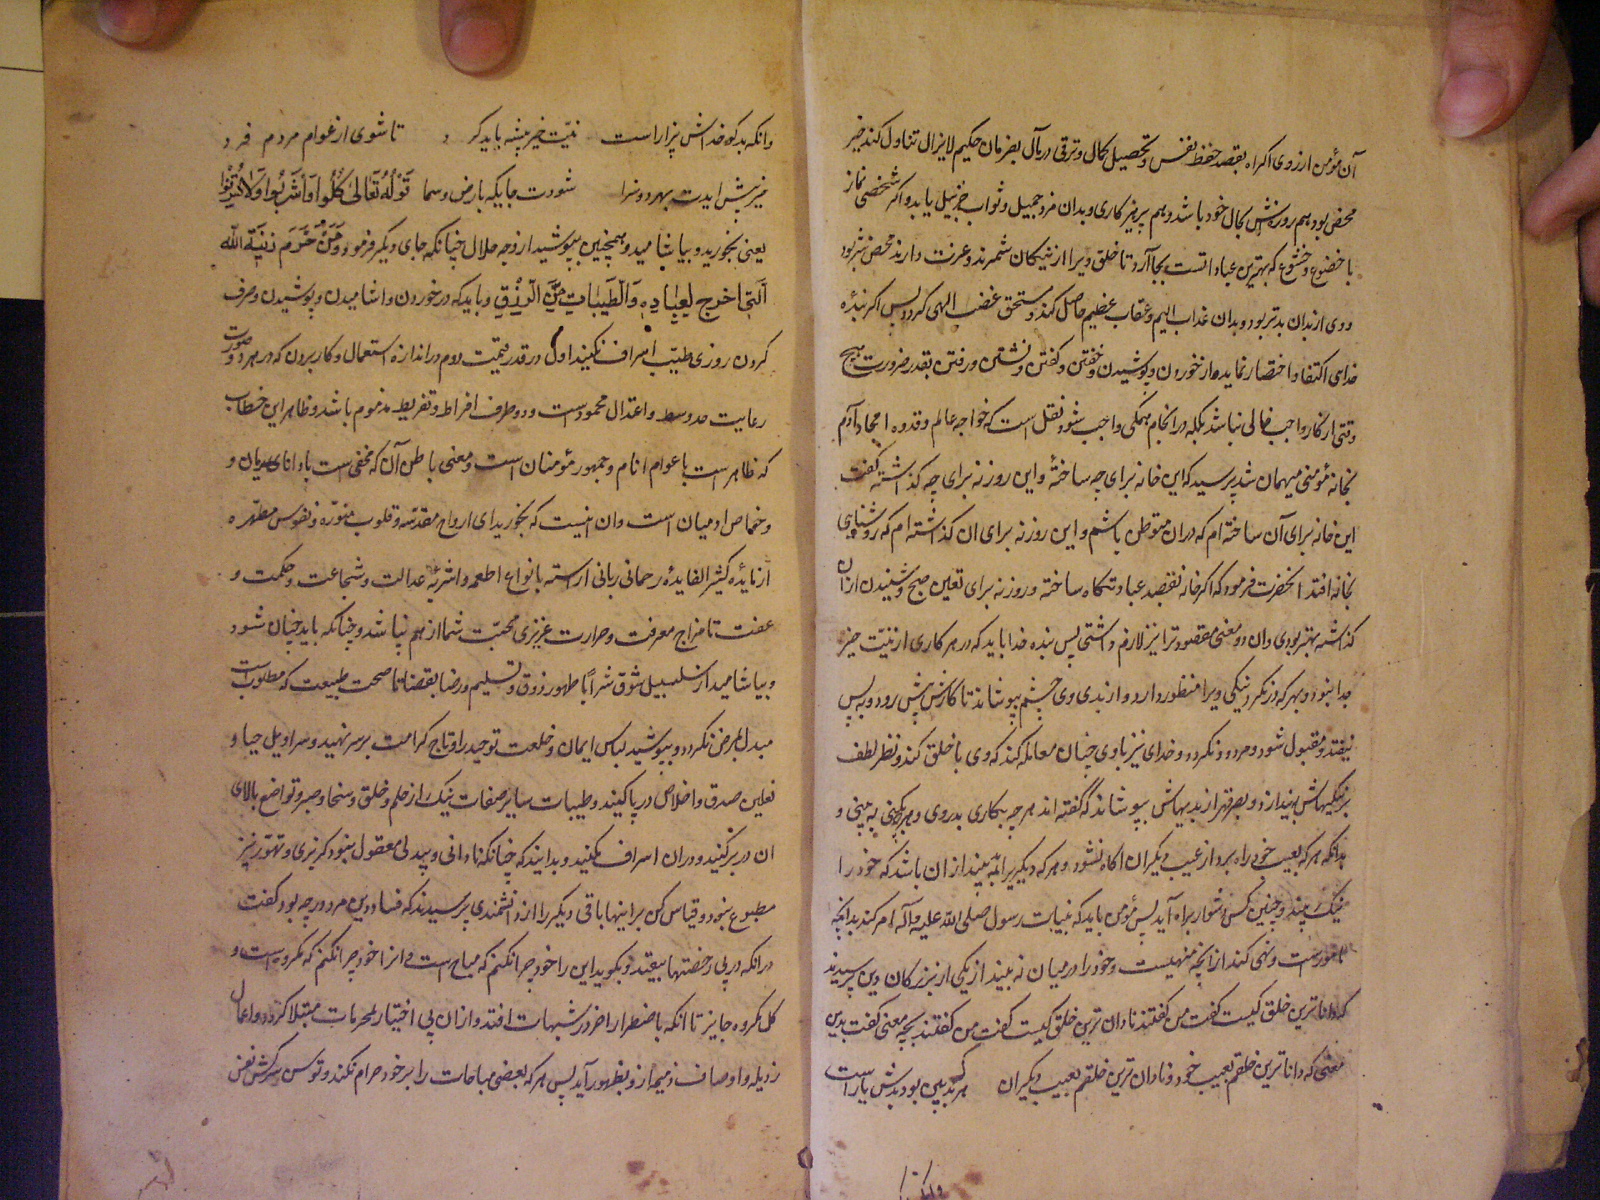 آن مؤمن از روی اکراه بقصد حفظ نفس و تحصیل کمال و ترقی در مآل بفرمان حکیم لایزال تناول کند خیر
محض بود هم روزه‌اش بحال خود باشد و هم پرهیزکاری و بدان مزد جمیل و ثواب جزیل یابد و اگر شخصی نماز
با خضوع و خشوع که بهترین عباداتست بجا آرد تا خلق ویرا از نیکان شمرند و عزت دارند محض شر بود
و وی از بدان بدتر بود و بدان عذاب الیم و عقاب عظیم حاصل کند و مستحق غضب الهی گردد پس اگر بنده
خدای اکتفا و اختصار نماید از خوردن و پوشیدن و خفتن و گفتن و نشستن و رفتن بقدر ضرورت هیچ
وقتی از کار واجب خالی نباشد بلکه در انجام همگی واجب شود نقل است که خواجه عالم و قدوه امجاد آدم
بخانه مؤمنی میهمان شد پرسید که این خانه برای چه ساختهٔ و این روزنه برای چه گذاشتهٔ گفت
این خانه برای آن ساخته‌ام که در ان متوطن باشم و این روزنه برای ان گذاشته‌ام که روشنایی
بخانه افتد انحضرت فرمود که اگر خانه بقصد عبادتگاه ساخته و روزنه برای تعین صبح و شنیدن اذان
گذاشته بهتر بودی و ان دو معنی مقصود ترا نیز لازم داشتی پس بنده خدا باید که در هر کاری از نیت خیر
جدا نبود و بهر که در نگرد نیکی ویرا منظور دارد و از بدی وی چشم بپوشاند تا کارش پیش رود و به پس
نیفتد و مقبول شود و مردود نگردد و خدای نیز باوی چنان معامله کند که وی با خلق کند و نظر لطف
بر نیکیهاش بیندازد و بصر قهر از بدیهاش بپوشاند که گفته‌اند هر چه بکاری بدروی و هر چه کنی به بینی و
بدانکه هر که بعیب خود راه برد از عیب دیگران اگاه نشود و هر که دیگریرا بد بیند از ان باشد که خود را
نیک بیند و چنین کس دشوار براه آید پس مؤمن باید که بنیابت رسول صلی الله علیه و آله امر کند بدانچه
مامور است و نهی کند از انچه منهیست و خود را در میان نه بیند از یکی از بزرگان دین پرسیدند
که داناترین خلق کیست گفت من گفتند نادان ترین خلق کیست گفت من گفتند بچه معنی گفت بدین
معنی که داناترین خلقم بعیب خود و نادان ترین خلقم بعیب دیگران هر که بدبین بود بدش یار است
وانکه بد گو خداش بیزار است نیت خیر پیشه باید کرد تا شوی از عوام مردم فرد
خیر پیش ایدت بهر دو سرا شودت جایگه بارض و سما قوله تعالی کلوا واشربوا ولا تسرفوا
یعنی بخورید و بیاشامید و همچنین بپوشید از وجه حلال چنانکه جای دیگر فرمود و من حرم زینة الله
التی اخرج لعباده والطیبات من الرزق و باید که در خوردن و اشامیدن و پوشیدن و صرف
کردن روزی طیب اسراف نکنید اول در قدر قیمت دوم در اندازه استعمال و کار بردن که در هر دو صورت
رعایت حد وسط و اعتدال محمود است و دو طرف افراط و تفریط مذموم باشد و ظاهر این خطاب
که ظاهر است با عوام انام و جمهور مؤمنان است و معنی باطن آن که مخفی است با دانای و
و خاص ادمیان است و ان اینست که بخورید ای ارواح مقدسه و قلوب منوره و نفوس مطهره
از مائده کثیر الفایده رحمانی ربانی اراسته بانواع اطعمه و اشربه عدالت و شجاعت و حکمت و
عفت تا مزاج معرفت و حرارت غریزی محبت شما از هم نپاشد و چنانکه باید چنان شود
و بیاشامید از سلسبیل شوق شرابا طهور ذوق و تسلیم و رضا بقضا تا صحت طبیعت که مطلوبست
مبدل بمرض نگردد و بپوشید لباس ایمان و خلعت توحید را و تاج کرامت بر سر نهید و سراویل حیا و
نعلین صدق و اخلاص در پا کنید و طیبات سایر صفات نیک را از حلم و خلق و سخا و صبر و تواضع بالای
ان در بر کنید و در ان اسراف مکنید و بدانید که چنانکه نادانی و بیدلی معقول نبود و تهور نیز
مطبوع نبود و قیاس کن بر اینها باقی دیگر را از دانشمندی پرسیدند که فساد دین مرد در چه بود گفت
در انکه در پی رخصتها بیفتد و بگوید این را خود چرا نکنم که مباح است و انرا خود چرا نکنم که مکروهست و
کل مکروه جایز تا انکه باضطرار اخر در شبهات افتد و از ان پی اختیار بمحرمات مبتلا گردد و اعمال
رذیله و اوصاف ذمیمه از و بظهور آید پس هر که بعضی مباحات را بر خود حرام نکند و توسن سرکش نفس